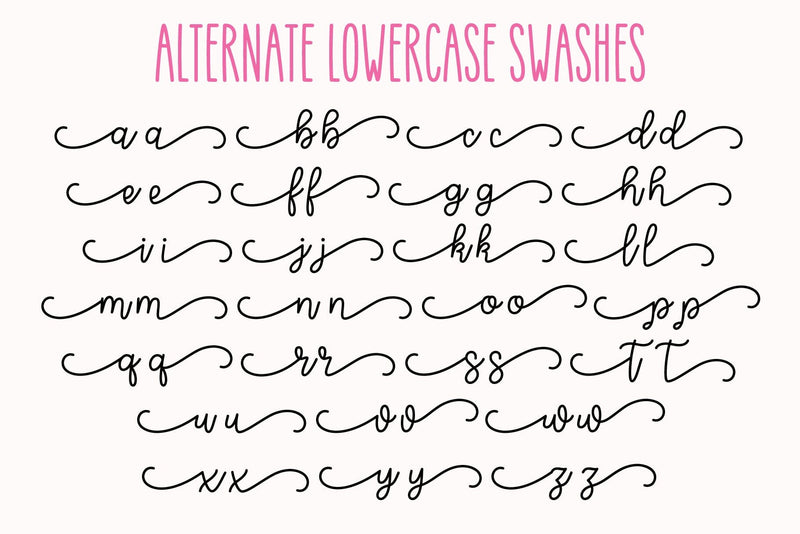 ALTERNATE LOWERCASE SWASHES
aa bb cc dd
ee ff gg hh
ii jj kk ll
mm nn oo pp
qq rr ss tt
uu vv ww
xx yy zz